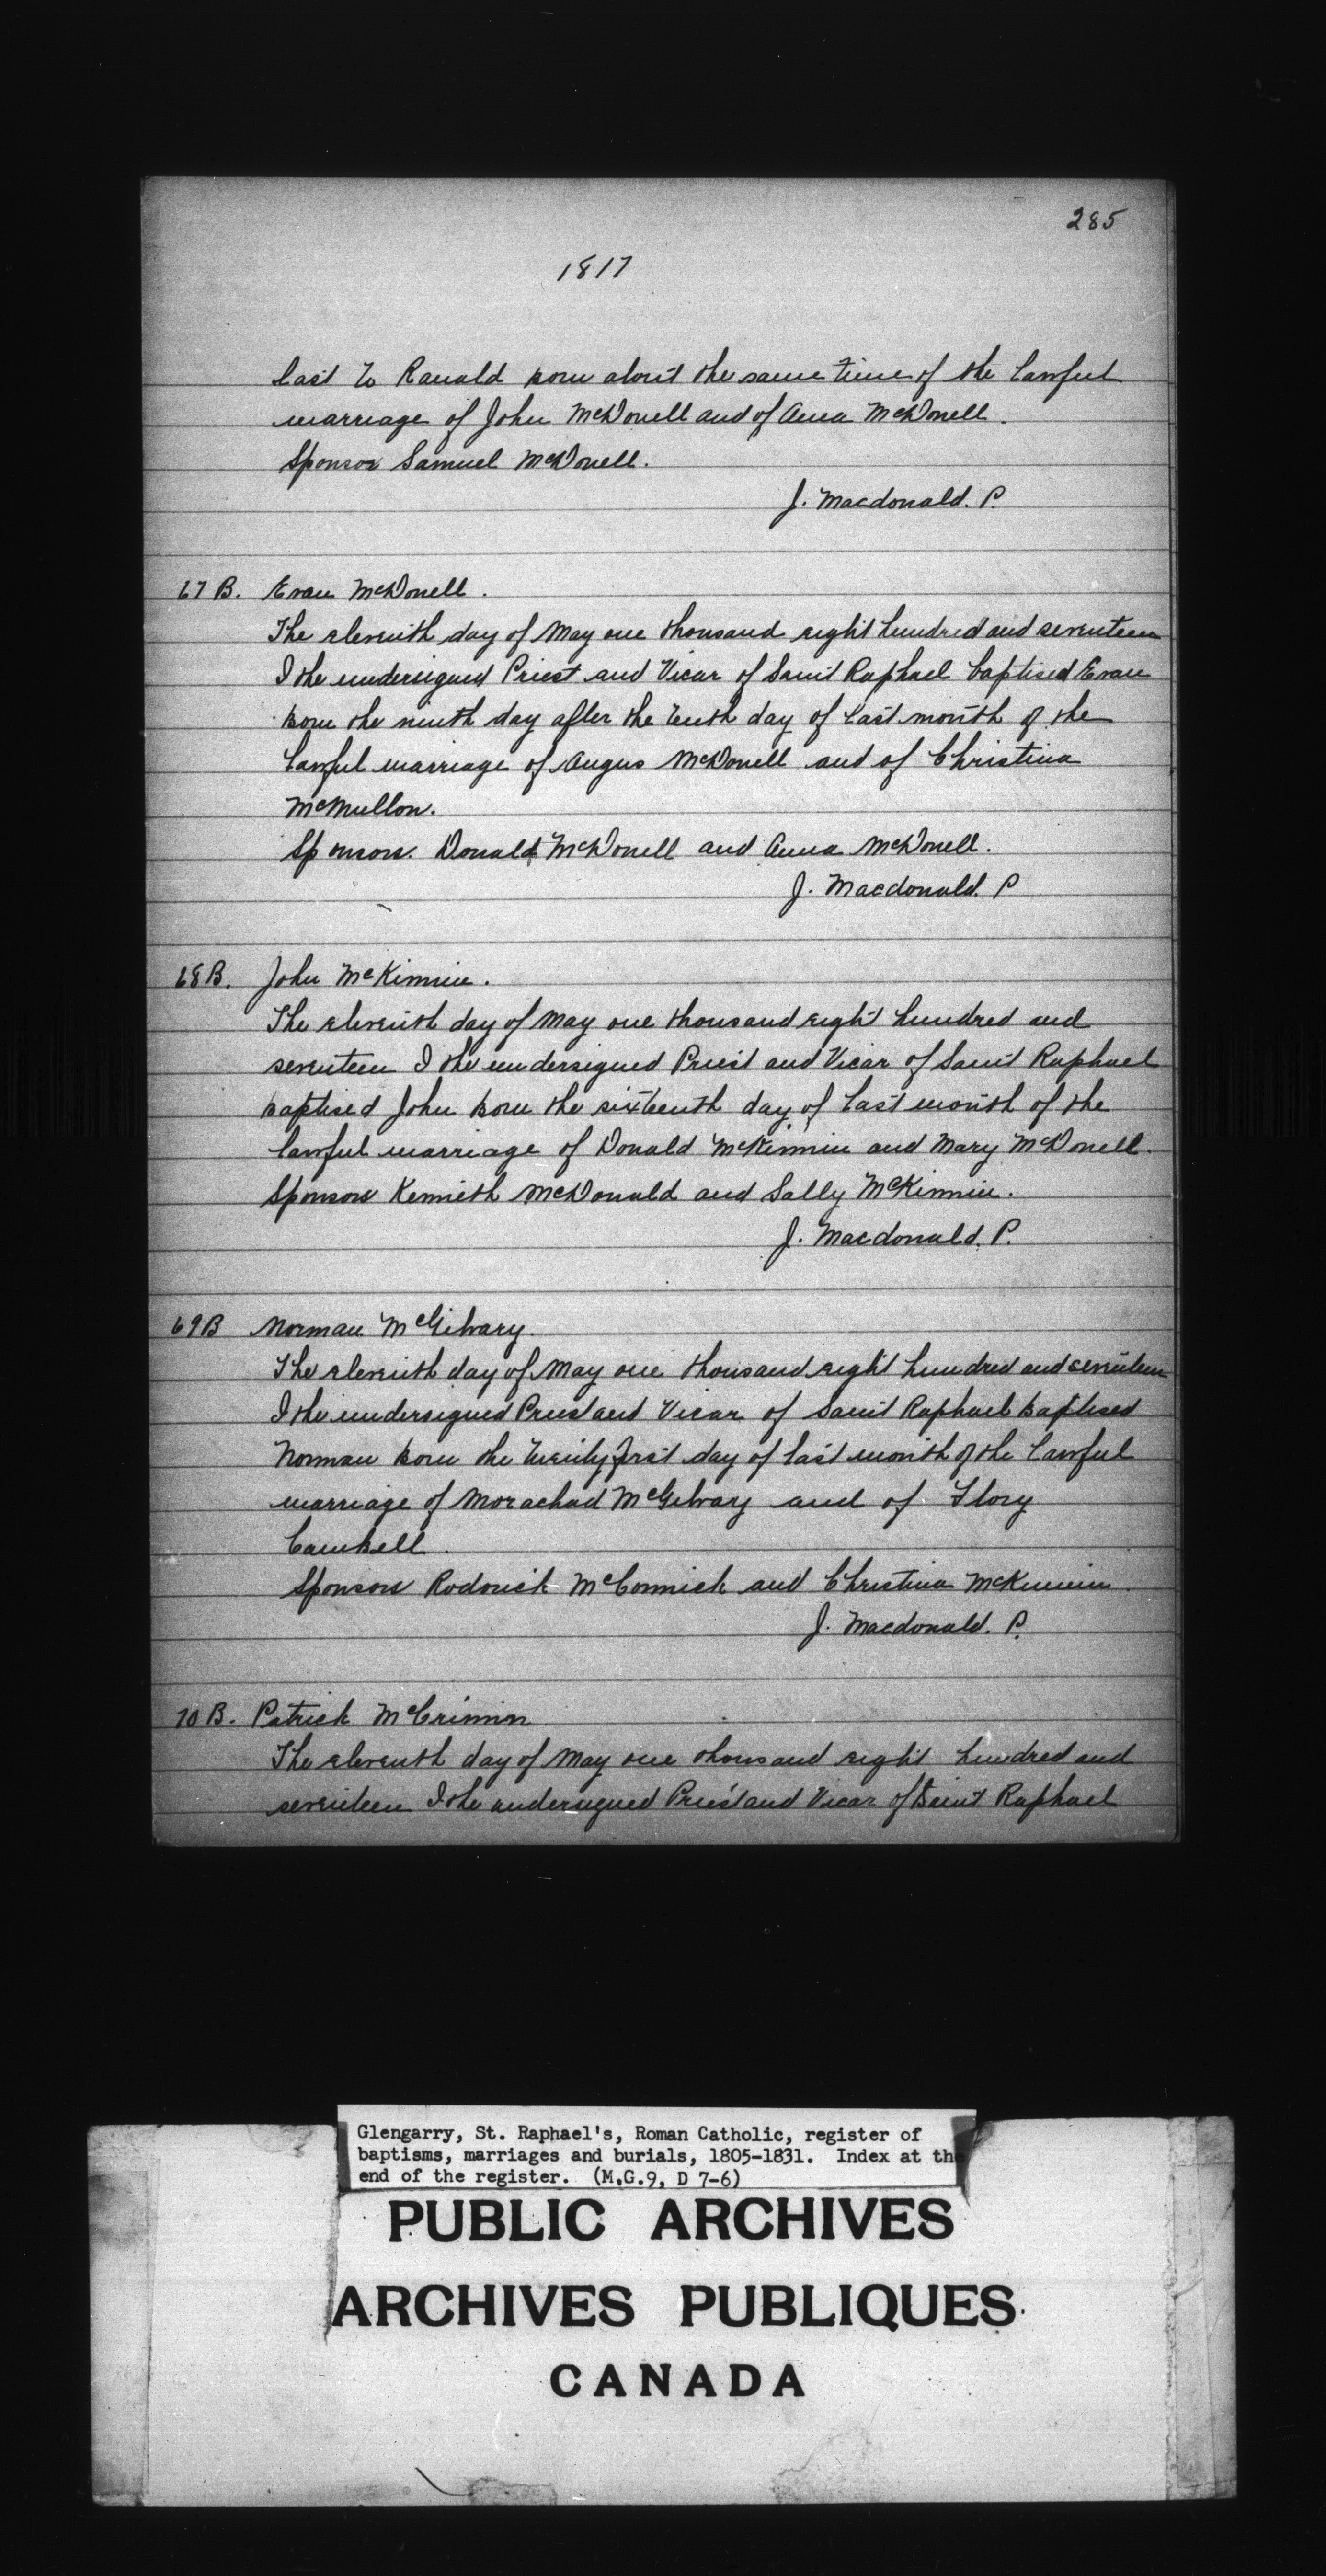 285
1817
last to Ranald born about the same time of the lawful
marriage of John McDonell and of Anna McDonell.
Sponsor Samuel McDonell.
J. Macdonald. P.
67 B. Evan McDonell.
The eleventh day of May one thousand eight hundred and seventeen
I the undersigned Priest and Vicar of Saint Raphael baptised Evan
born the ninth day after the tenth day of last month of the
lawful marriage of Angus McDonell and of Christina
McMullon.
Sponsors. Donald McDonell and Anna McDonell.
J. Macdonald. P
68 B. John McKinnin.
The eleventh day of May one thousand eight hundred and
seventeen I the undersigned Priest and Vicar of Saint Raphael
baptised John born the sixteenth day of last month of the
lawful marriage of Donald McKinnin and Mary McDonell.
Sponsors Kenneth McDonald and Sally McKinnin.
J. Macdonald. P.
69 B Norman McGilvary.
The eleventh day of May one thousand eight hundred and seventeen
I the undersigned Priest and Vicar of Saint Raphael baptised
Norman born the twenty first day of last month of the lawful
marriage of Morachad McGilvary and of Flory
Cambell.
Sponsors Rodorick McCormick and Christina McKinnin.
J. Macdonald. P.
70 B. Patrick McCrimin
The eleventh day of May one thousand eight hundred and
seventeen I the undersigned Priest and Vicar of Saint Raphael
Glengarry, St. Raphael's, Roman Catholic, register of
baptisms, marriages and burials, 1805-1831. Index at the
end of the register. (M.G.9, D 7-6)
PUBLIC ARCHIVES
ARCHIVES PUBLIQUES
CANADA